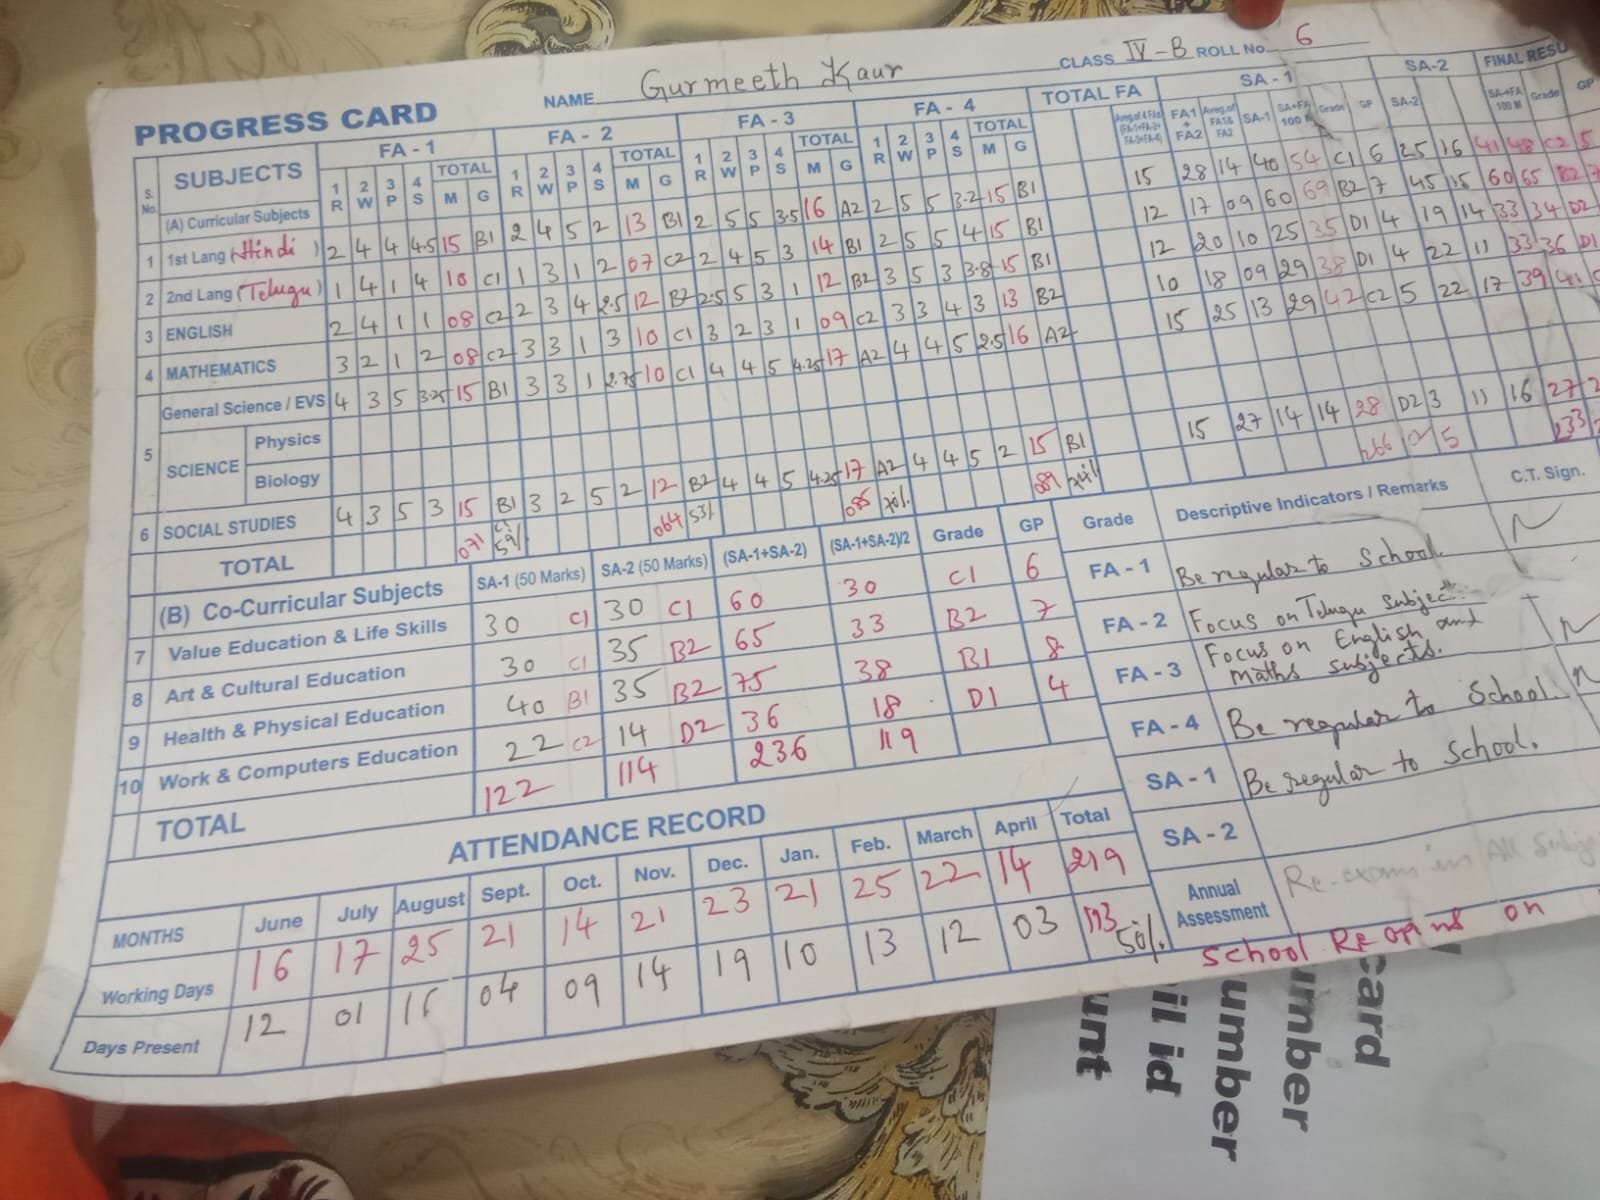 PROGRESS CARD
NAME Gurmeeth Kaur CLASS IV-B ROLL No. 6
S. No. SUBJECTS FA - 1 FA - 2 FA - 3 FA - 4 TOTAL FA SA - 1 SA-2 FINAL RESU
1 R 2 W 3 P 4 S TOTAL M G 1 R 2 W 3 P 4 S TOTAL M G 1 R 2 W 3 P 4 S TOTAL M G 1 R 2 W 3 P 4 S TOTAL M G FA1 + FA2 Avreg.of FA1& FA2 SA-1 SA+FA 100 Grade GP SA-2 SA+FA 100 M Grade GP
(A) Curricular Subjects
1 1st Lang (Hindi) 2 4 4 4.5 15 B1 2 4 5 2 13 B1 2 5 5 3.5 16 A2 2 5 5 3.2 15 B1 15 28 14 40 54 C1 6 25 16 41 48 C2 5
2 2nd Lang (Telugu) 1 4 1 4 10 C1 1 3 1 2 07 C2 2 4 5 3 14 B1 2 5 5 4 15 B1 12 17 09 60 69 B2 7 45 15 60 65 B2 7
3 ENGLISH 2 4 1 1 08 C2 2 3 4 2.5 12 B2 2.5 5 3 1 12 B2 3 5 3 3.8 15 B1 12 20 10 25 35 D1 4 19 14 33 34 D2
4 MATHEMATICS 3 2 1 2 08 C2 3 3 1 3 10 C1 3 2 3 1 09 C2 3 3 4 3 13 B2 10 18 09 29 38 D1 4 22 11 33 36 D1
General Science / EVS 4 3 5 3.25 15 B1 3 3 1 2.75 10 C1 4 4 5 4.25 17 A2 4 4 5 2.5 16 A2 15 25 13 29 42 C2 5 22 17 39
5 SCIENCE Physics
Biology
6 SOCIAL STUDIES 4 3 5 3 15 B1 3 2 5 2 12 B2 4 4 5 4.25 17 A2 4 4 5 2 15 B1 15 27 14 14 28 D2 3 11 16 27
TOTAL 071 59% 064 53% 085 70% 089 74% 266 5 233
(B) Co-Curricular Subjects SA-1 (50 Marks) SA-2 (50 Marks) (SA-1+SA-2) (SA-1+SA-2)/2 Grade GP
7 Value Education & Life Skills 30 C1 30 C1 60 30 C1 6
8 Art & Cultural Education 30 C1 35 B2 65 33 B2 7
9 Health & Physical Education 40 B1 35 B2 75 38 B1 8
10 Work & Computers Education 22 C2 14 D2 36 18 D1 4
TOTAL 122 114 236 119
Grade Descriptive Indicators / Remarks C.T. Sign.
FA - 1 Be regular to School.
FA - 2 Focus on Telugu subject.
FA - 3 Focus on English and
maths subjects.
FA - 4 Be regular to School.
SA - 1 Be regular to School.
SA - 2
Annual Assessment Re-exam in All Subje
School Re opins on
ATTENDANCE RECORD
MONTHS June July August Sept. Oct. Nov. Dec. Jan. Feb. March April Total
Working Days 16 17 25 21 14 21 23 21 25 22 14 219
Days Present 12 01 04 09 14 19 10 13 12 03 113 50%
card
umber
umber
il id
unt